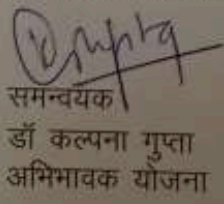 Kgupta
समन्वयक
डॉ कल्पना गुप्ता
अभिभावक योजना